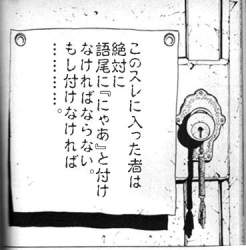 このスレに入った者は
絶対に
語尾に『にゃあ』と付け
なければならない。
もし付けなければ
…………。